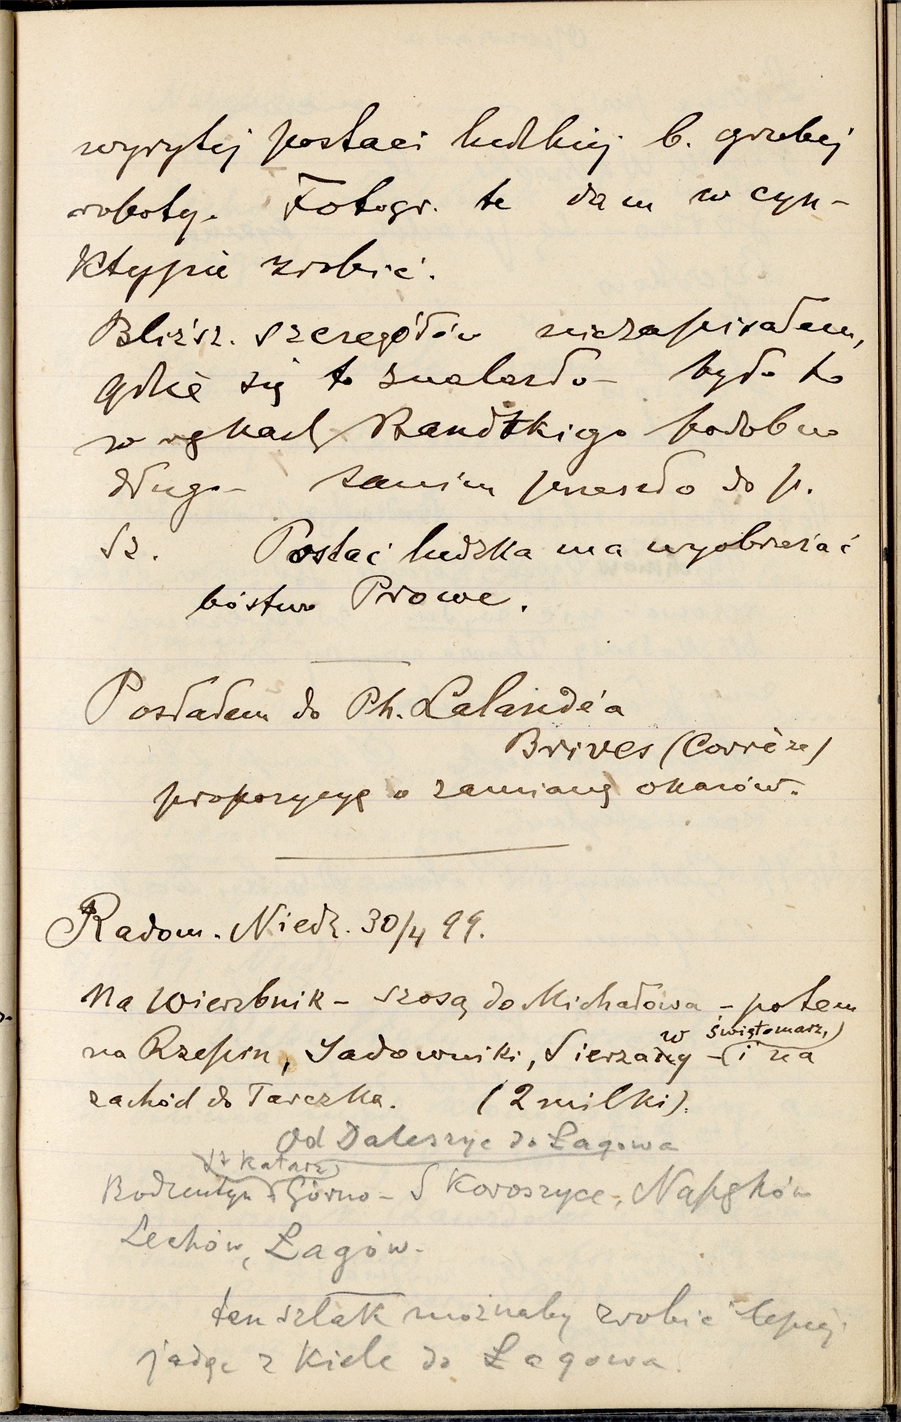 wyrytej postaci ludzkiej b. grubej
roboty. Fotogr. te dam w cyn-
ktypii zrobić.
Bliższ. szczegółów niezapisałem,
gdzie się to znalazło – było to
w rękach Bandtkiego podobno
długo – zanim przeszło do p.
Sz. Postać ludzka ma wyobrażać
bóstwo Prowe.
Posłałem do Ph. Lalandé'a
Brives (Corrèze)
propozycyę o zamianę okazów.
Radom. Niedz. 30/4 99.
Na Wierzbnik – szosą do Michałowa – potem
w świętomarz,)
na Rzepin, Jadowniki, Sierżawy – (i na
zachód do Tarczka. (2 milki).
Od Daleszyc do Łagowa
Św Katarz)
Bodzentyn Górno – Skoroszyce, Napęków
Lechów, Łagów.
ten szlak możnaby zrobić lepiej
jadąc z Kielc do Łagowa.